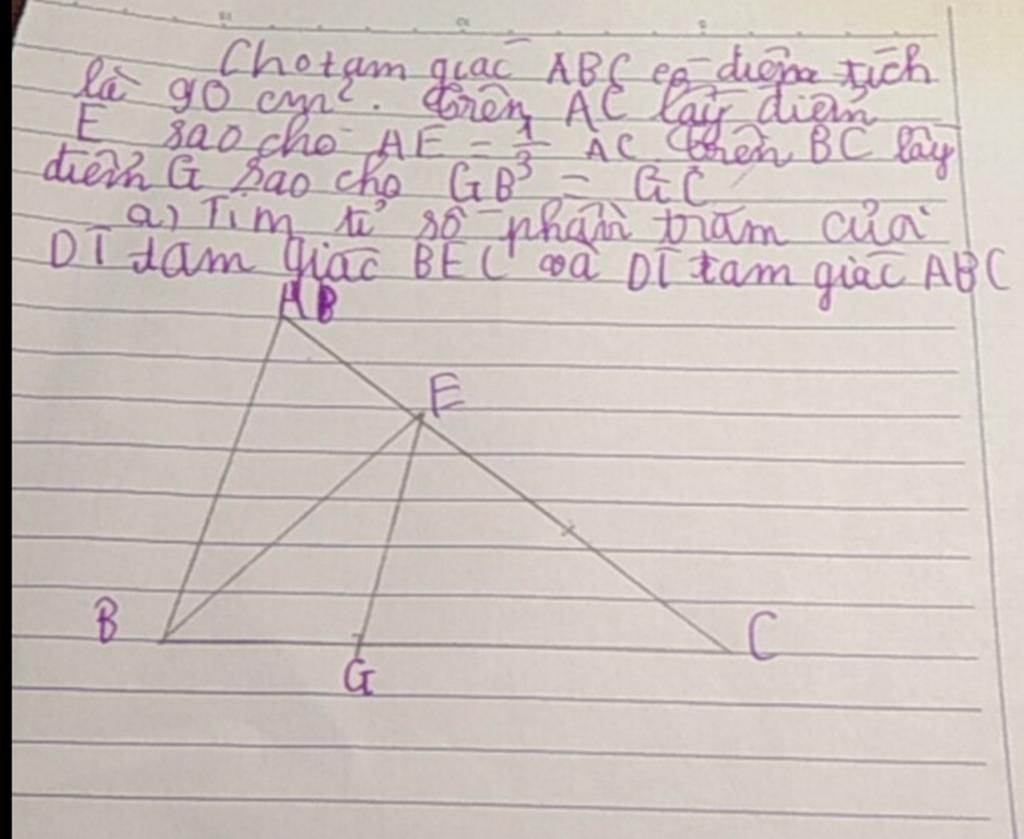 Cho tam giác ABC có diện tích
là 90 cm². trên AC lấy điểm
E sao cho AE = 1/3 AC trên BC lấy
điểm G sao cho GB = GC
a) Tìm tỉ số phần trăm của
DT tam giác BEC và DT tam giác ABC
A B
E
B
C
G